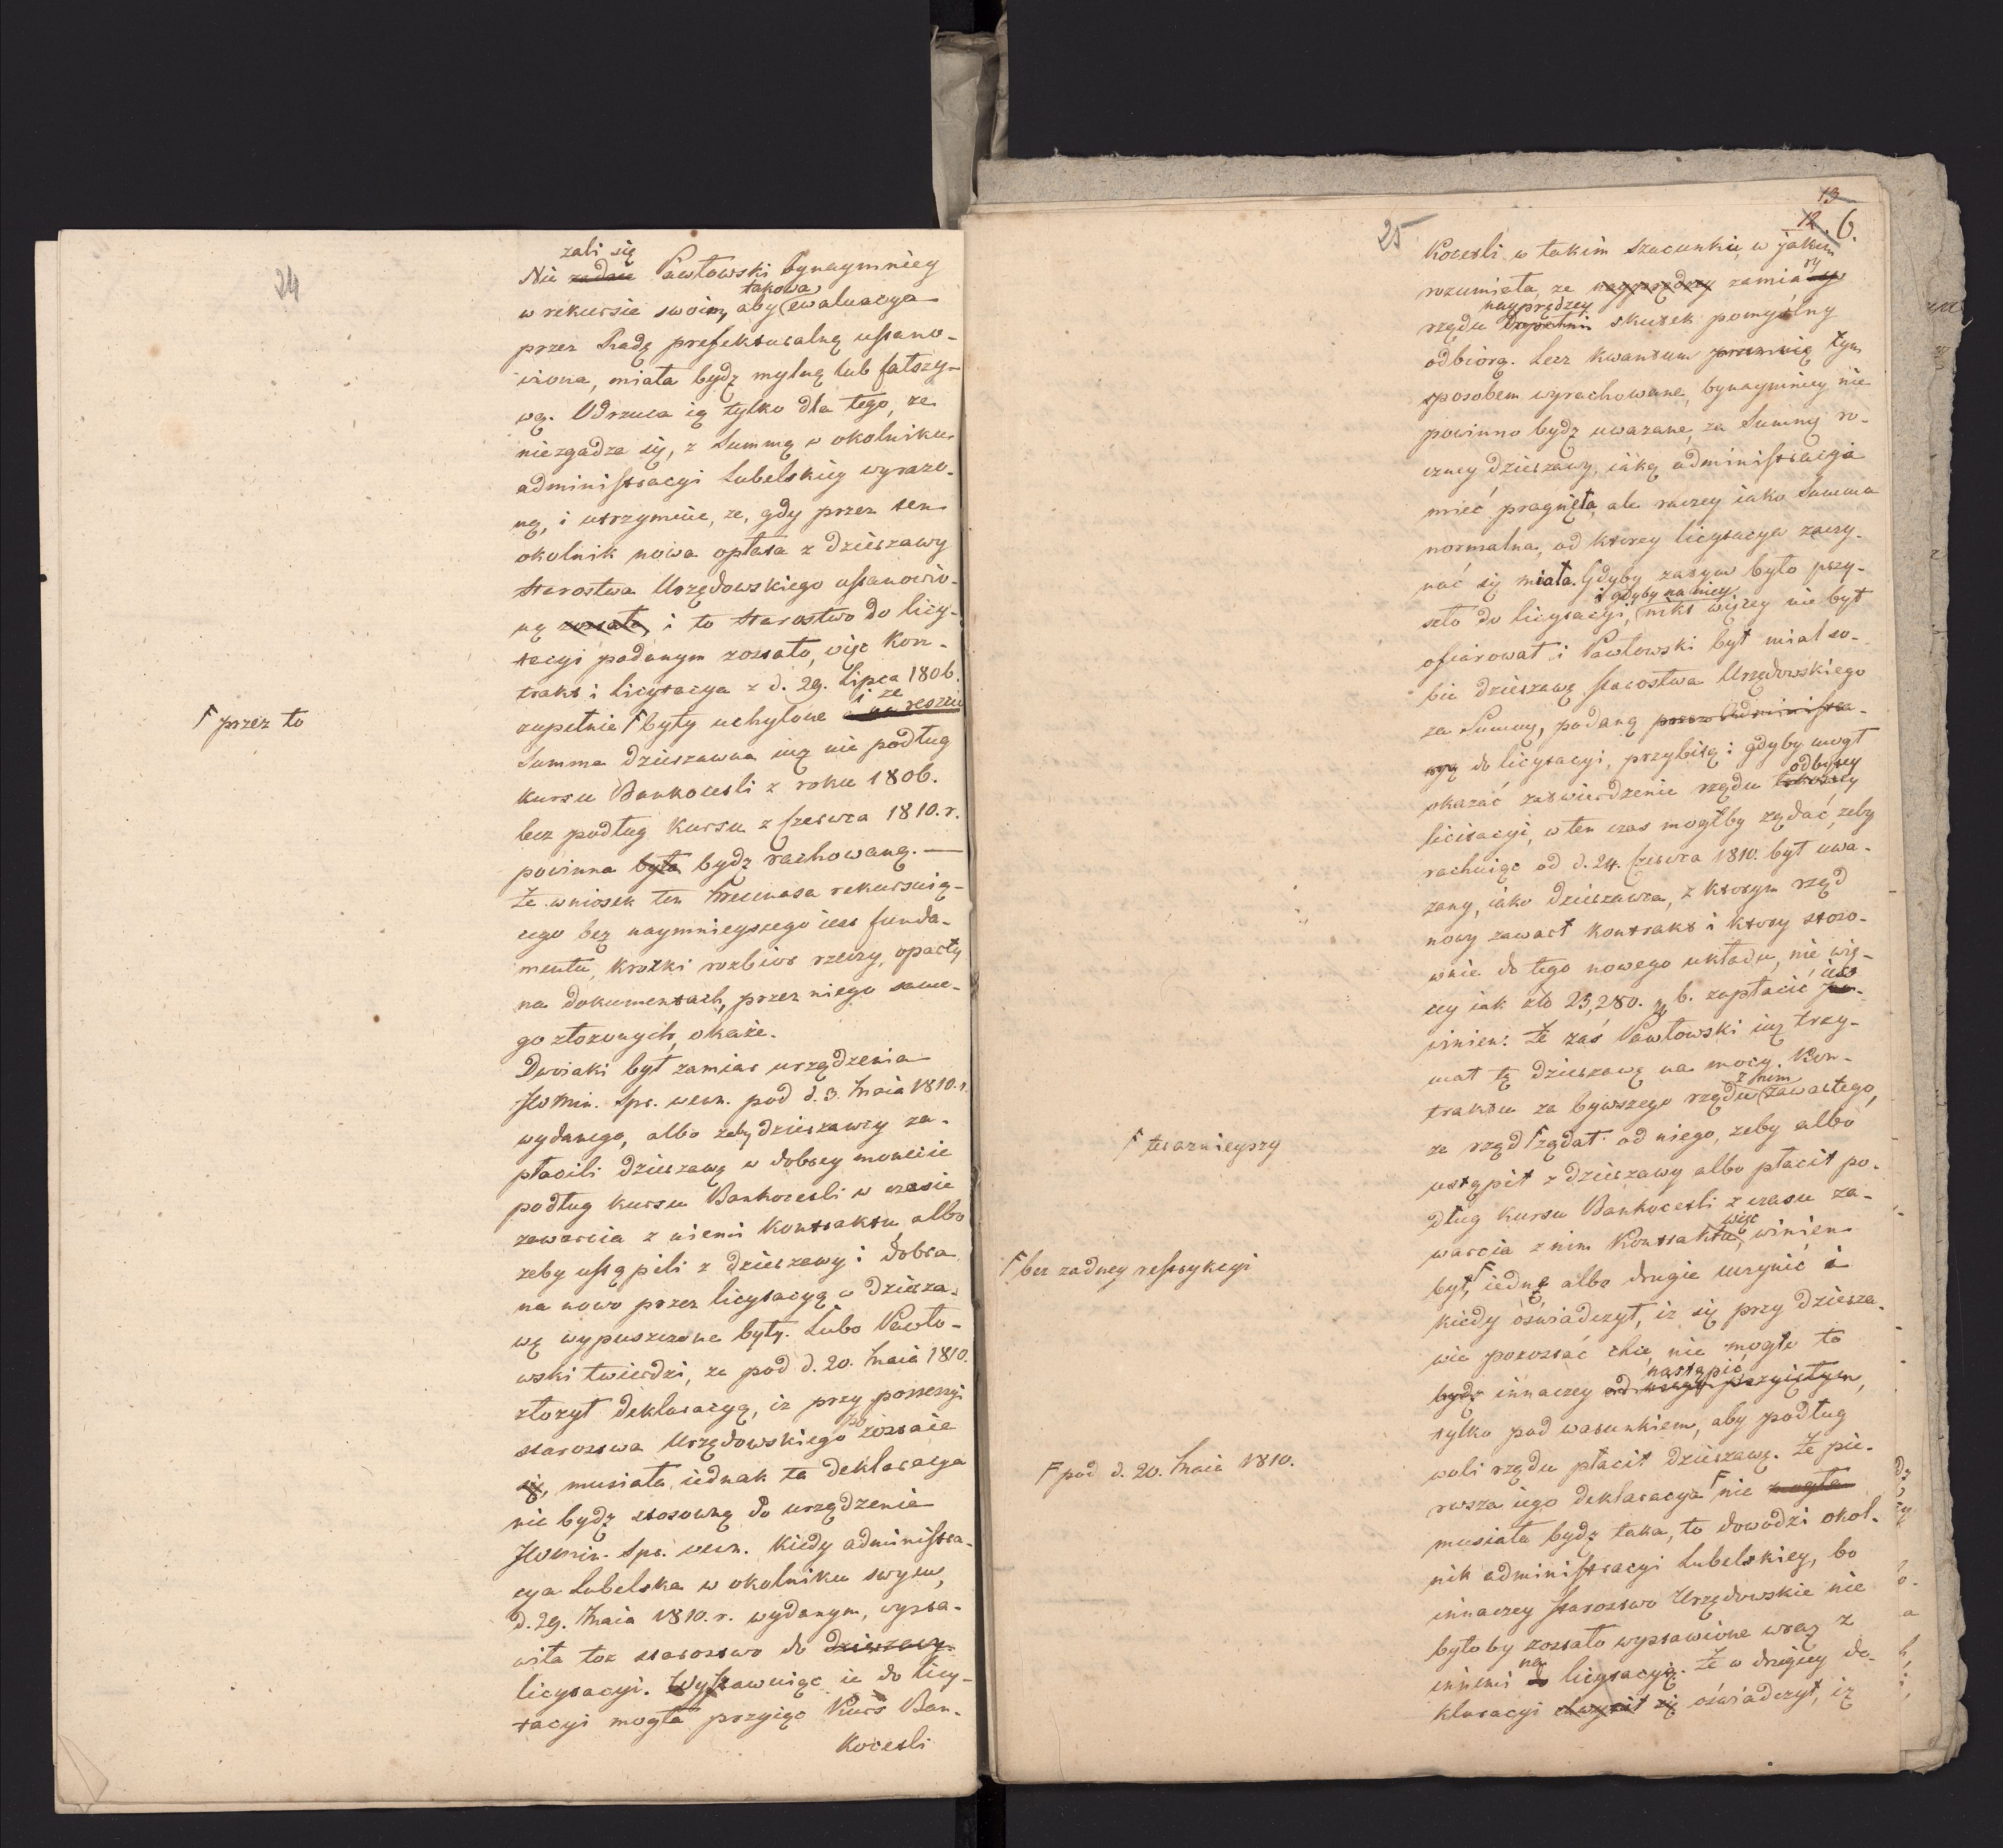 24
żali się
Nie żadne Pawłowski bynaymniey
takowa
w rekursie swoim, aby ewaluacya
przez Radę prefekturalną ustano-
wiona, miała bydź mylną lub fałszy-
wą. Odrzuca ią tylko dla tego, że
niezgadza się, z Summą w okolniku
administracyi Lubelskiey wyrażo-
ną, i utrzymuie, że, gdy przez ten
okolnik nowa opłata z dzierzawy
Starostwa Urzędowskiego ustanowio-
ną została, i to Starostwo do licy-
tacyi podanym zostało, więc Kon-
trakt i licytacya z d. 29. Lipca 1806.
i że
zupełnie F były uchylone
F przez to
Summa dzierzawna iuż nie podług
kursu Bankocetli z roku 1806.
lecz podług kursu z Czerwca 1810. r.
powinna była bydź rachowaną. —
Że wniosek ten Mecenasa rekursuią-
cego bez naymnieyszego iest funda-
mentu, krótki rozbior rzeczy, oparty
na dokumentach, przez niego same-
go złożonych, okaże.
Dwoiaki był zamiar urządzenia
JW Min. Spr. wewn. pod d. 3. Maia 1810. r.
wydanego, albo żeby dzierzawcy za-
płacili dzierzawę w dobrey monecie
podług kursu Bankocetli w czasie
zawarcia z niemi Kontraktu, albo
żeby ustąpili z dzierzawy i dobra
na nowo przez licytacyą w dzierza-
wę wypuszczone były. Lubo Pawło-
wski twierdzi, że pod d. 20. Maia 1810.
złożył deklaracyą, iż przy possessyi
starostwa Urzędowskiego zostaie
się, musiała iednak ta deklaracya
nie bydź stosowną do urządzenia
JW Min. Spr. wewn. kiedy administra-
cya Lubelska w okolniku swym,
d. 29. Maia 1810. r. wydanym, wysta-
wiła toż starostwo do dzierzawy
licytacyi. Wystawuiąc ie do licy-
tacyi mogła przyiąć Kurs Ban-
kocetli
25
13
12. 6.
Kocetli w takim szacunku, w jakim
rozumiała, że nayprędzey zamiary
nayprędzey
rządu skutek pomyślny
odbiorą. Lecz kwantum tym
sposobem wyrachowane, bynaymniey nie
powinno bydź uważane, za Summę ro-
czney dzierzawy, iaką administracya
mieć pragnęła, ale raczey iako Summa
normalna, od ktorey licytacya zaczy-
nać się miała. Gdyby zatym było przy-
i gdyby na niey
szło do licytacyi, nikt więcey nie był
ofiarował i Pawłowski był miał so-
bie dzierzawę starostwa Urzędowskiego
za Summę, podaną przez Administra-
cyą do licytacyi, przybitą i gdyby mogł
odbytey
okazać zatwierdzenie rządu takowey
licitacyi, w ten czas mogłby żądać, żeby
rachuiąc od d. 24. Czerwca 1810. był uwa-
żany, iako dzierzawca, z ktorym rząd
nowy zawarł kontrakt i ktory stoso-
wnie do tego nowego układu, nie wię-
iest
cey iak zło 25,280. g. 6. zapłacić po-
winien. Że zaś Pawłowski iuż trzy-
mał tę dzierzawę na mocy Kon-
z nim
traktu za bywszego rządu zawartego,
że rząd F żądał od niego, żeby albo
F teraznieyszy
ustąpił z dzierzawy albo płacił po-
dług kursu Bankocetli z czasu za-
więc
warcia z nim Kontraktu, winien
był, F iedne albo drugie uczynić i
F bez żadney restrykcyi
kiedy oświadczył, iż się przy dzierza-
wie pozostać chce, nie mogło to
nastąpić
bydź innaczey od niego przyiętym,
tylko pod warunkiem, aby podług
woli rządu płacił dzierzawę. Że pie-
rwsza iego deklaracya F nie mogła
F pod d. 20. Maia 1810.
musiała bydź taka, to dowodzi okol-
nik administracyi Lubelskiey, bo
innaczey starostwo Urzędowskie nie
byłoby zostało wystawione wraz z
na
innemi do licytacyą. Że w drugiey de-
klaracyi chwycił się oświadczył, iż